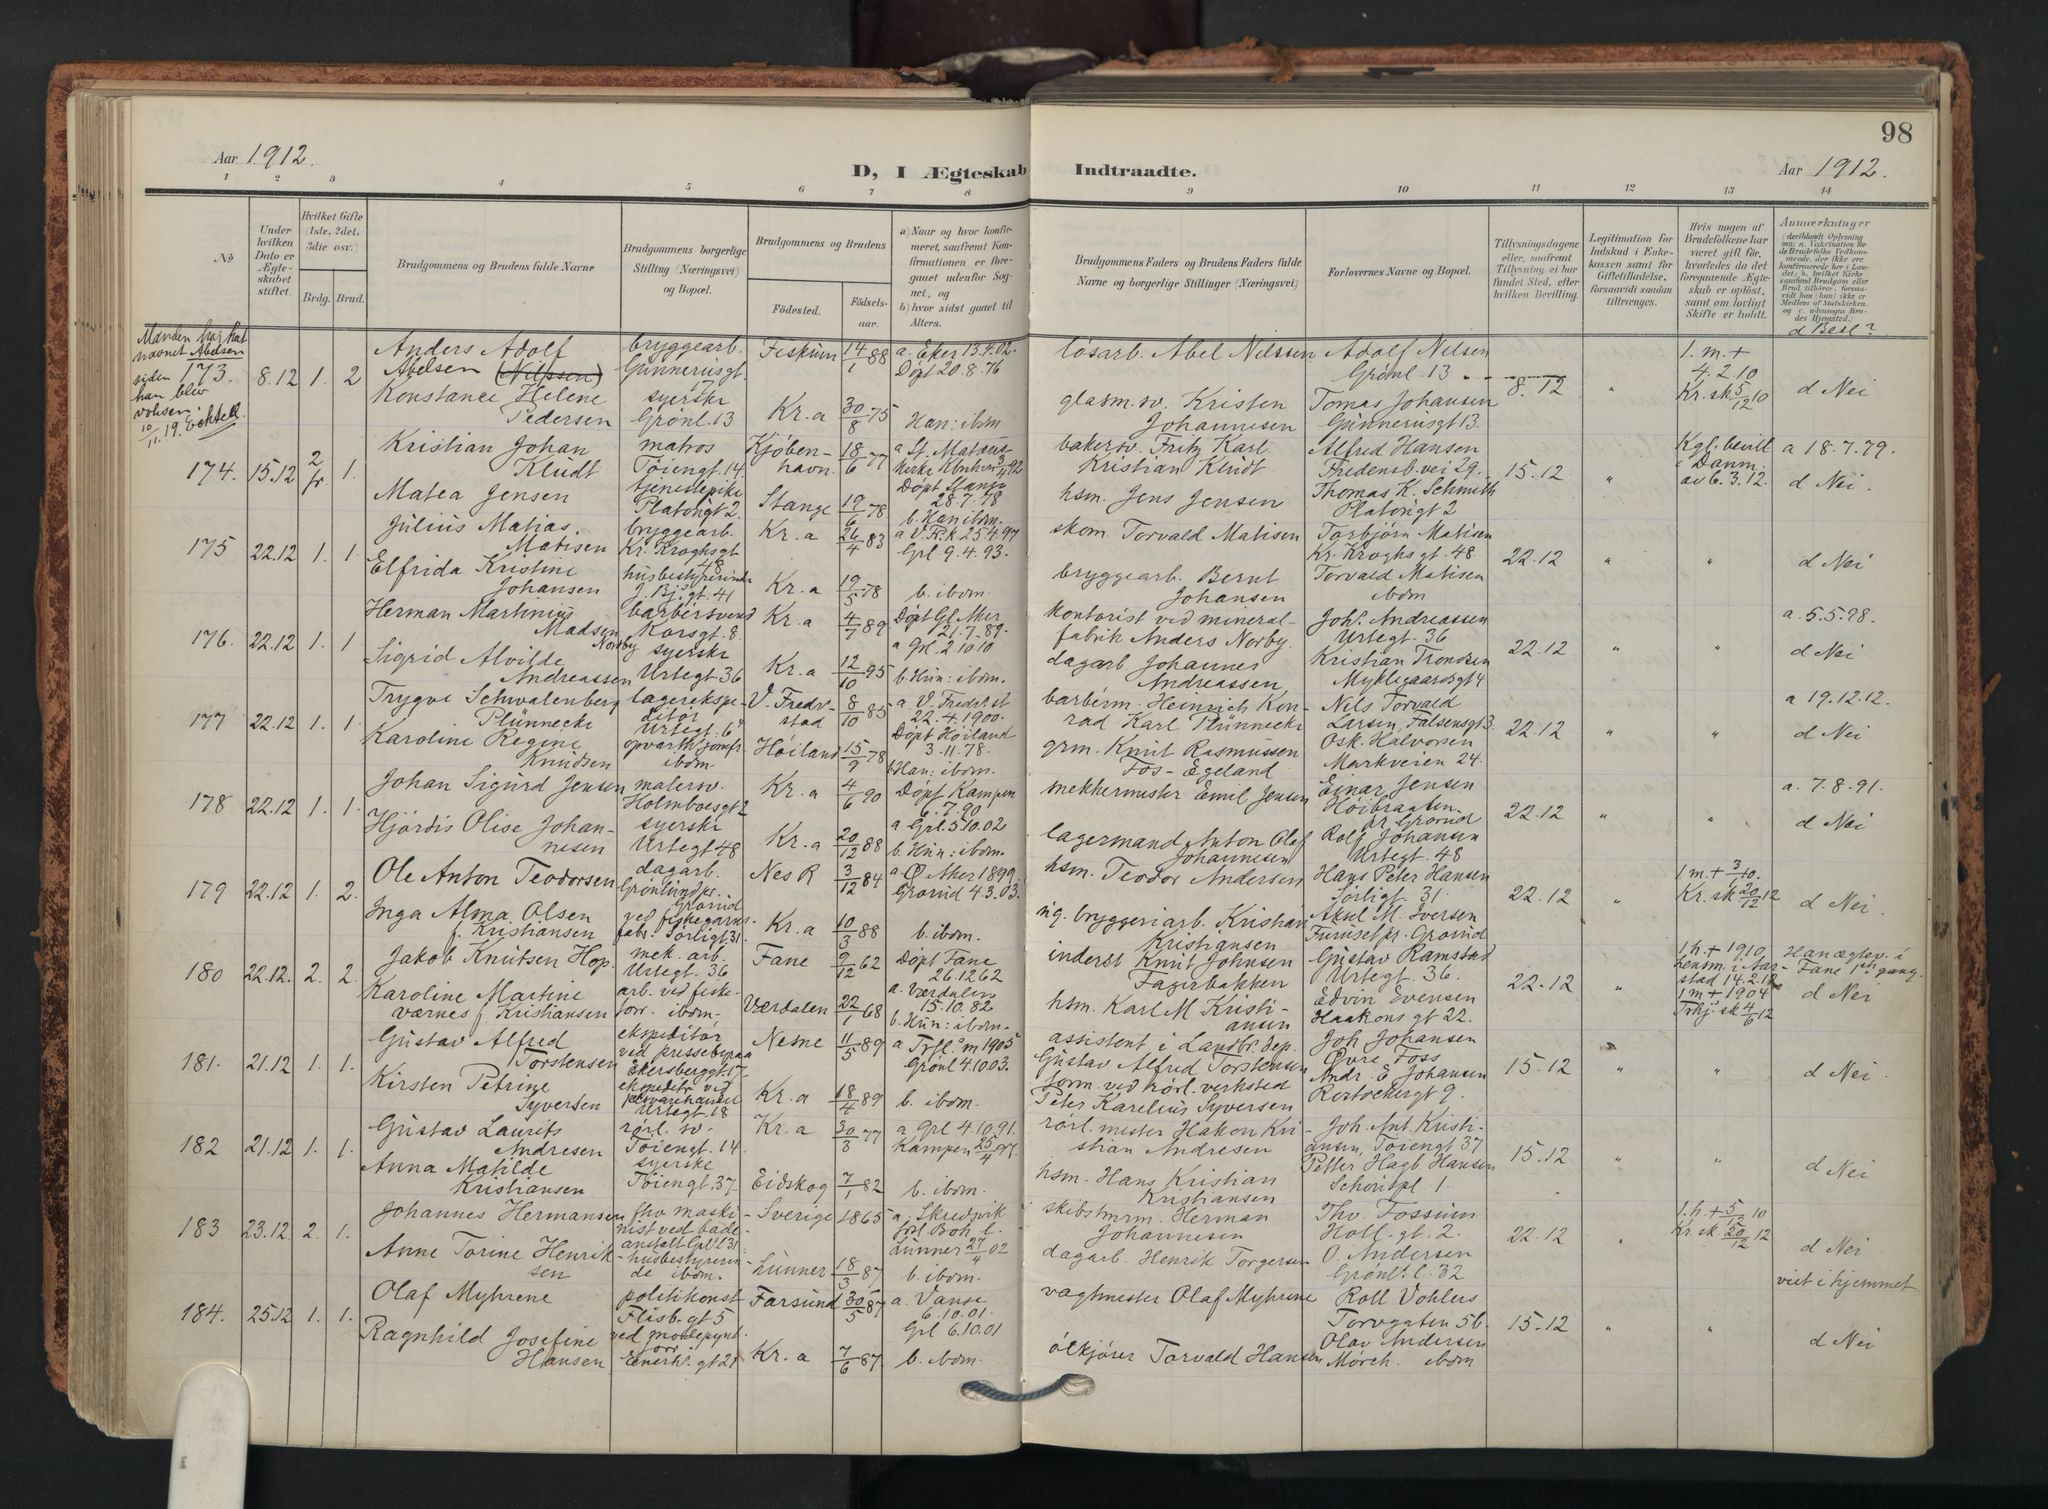 98
Aar 1912.
D, I Ægteskab Indtraadte.
Aar 1912.
1 2 3 4 5 6 7 8 9 10 11 12 13 14
No
Under hvilken Dato er Ægteskabet stiftet.
Hvilket Gifte (1ste, 2det, 3die osv.)
Brdg. Brud.
Brudgommens og Brudens fulde Navne
Brudgommens borgerlige Stilling (Næringsvei) og Bopæl.
Brudgommens og Brudens
Födested. Födsels-aar.
a) Naar og hvor konfirmeret, saafremt Konfirmationen er foregaaet udenfor Sognet, og
b) hvor sidst gaaet til Alters.
Brudgommens Faders og Brudens Faders fulde Navne og borgerlige Stillinger (Næringsvei)
Forlovernes Navne og Bopæl.
Tillysningsdagene eller, saafremt Tillysning ei har fundet Sted, efter hvilken Bevilling.
Legitimation for Indskud i Enkekassen samt for Giftetilladelse, forsaavidt saadan tiltrænges.
Hvis nogen af Brudefolkene har været gift før, hvorledes da det foregaaende Ægteskab er opløst, samt om lovligt Skifte er holdt.
Anmærkninger
d Besl?
Manden har hat navnet Abelsen siden han blev voksen
10/11.19. Ecktell
173. 8.12 1. 2
Anders Adolf
Abelsen (Nilssen)
bryggearb.
Gunnerusgt. 17
Fiskum 14/1 88
a. Eker 13.4.02.
Døpt 20.8.76
løsarb. Abel Nilssen
Adolf Nilsen
Grønl. 13
8.12 "
1. m. +
4.2.10
Kr. sk. 5/12 10
d Nei
Konstance Helene
Pedersen
syerske
Grønl. 13
Kr.a 30/8 75
Han: ibdm
glasm. sv. Kristen
Johannesen
Tomas Johansen
Gunnerusgt 13.
174. 15.12 2 fr. 1.
Kristian Johan
Kludt
matros
Tøiengt. 14
Kjøbenhavn. 18/6 77
a St. Matæus
kirke Kbnhvn
bakersv. Fritz Karl
Kristian Kludt
Alfred Hansen
Fredensb. vei 29.
15.12 "
Kgl. bevill
i Danm.
av 6.3.12.
a 18.7.79.
d Nei
Matea Jensen
tjenestepike
Platousgt 2.
Stange 19/6 78
Døpt Stange
28.7.78
b. Han ibdm.
hsm. Jens Jensen
Thomas K. Schmith
Platousgt 2
175 22.12 1. 1.
Julius Matias
Matisen
bryggearb.
Kr. Kroghsgt 48
Kr.a 26/4 83
a V. F. k 25.4.97
Grl 9.4.93.
skom. Torvald Matisen
Torbjørn Matisen
Kr. Kroghsgt. 48
22.12 " "
d Nei
Elfrida Kristine
Johansen
husbestyrerinde
J. Bj. gt 41
Kr.a 19/5 78
b. ibdm.
bryggearb. Bernt
Johansen
Torvald Matisen
ibdm
176. 22.12 1. 1
Herman Martinius
Madsen Norby
barbersvend
Korsgt. 8
Kr.a 4/7 89
Døpt Gl. Aker
21.7.89.
a Grl 2.10.10
kontorist ved mineralfabrik Anders Norby.
Johs. Andreassen
Urtegt. 36
22.12 " "
a. 5.5.98.
d Nei
Sigrid Alvilde
Andreassen
syerske
Urtegt. 36
Kr.a 12/10 95
b. Hun: ibdm.
dagarb. Johannes
Andreassen
Kristian Trondsen
Myklegaardsgt 4
177 22.12 1. 1.
Trygve Schwalenberg
Plünnecke
lagerekspeditør
Urtegt. 6
V. Fredrstad 8/10 85
a. V. Fredr.st
22.4.1900.
barberm. Heinrich Konrad Karl Plünnecke
Nils Torvald
Larsen, Falsensgt 3
22.12 " "
a 19.12.12.
d Nei
Karoline Regine
Knudsen
opvartn.jomfr.
ibdm.
Høiland 15/9 78
Døpt Høiland
3.11.78.
b. Han: ibdm.
grm. Knut Rasmussen
Fos-Egeland
Osk. Halvorsen
Markveien 24.
178 22.12 1. 1.
Johan Sigurd Jensen
malersv.
Holmboesgt 2
Kr.a 4/6 90
Døpt Kampen
6.7.90
a Grl. 5.10.02
snekkermester Emil Jensen
Einar Jensen
Høibraaten
pr Grorud
22.12 " "
a. 7.8.91.
d Nei
Hjørdis Olise Johannesen
syerske
Urtegt 48
Kr.a 20/12 88
b. Hun: ibdm.
lagermand Anton Olaf
Johannesen
Rolf Johansen
Urtegt. 48
179 22.12 1. 2.
Ole Anton Teodorsen
dagarb.
Grorud
Nes R 3/12 84
a. Ø. Aker 1899
Grorud 4.3.03.
hsm. Teodor Andersen
Hans Peter Hansen
Sørligt. 31
22.12 "
1 m +
Kr. sk 20/12 12
d Nei
Inga Alma Olsen
f. Kristiansen
ved fiskegarnsfabr. Sørligt 31
Kr.a 10/3 88
b. ibdm.
bryggeriarb. Kristian
Kristiansen
Aksel M. Iversen
Furuset pr. Grorud
180 22.12. 2. 2.
Jakob Knutsen Hop
mek. arb.
Urtegt. 36
Fane 9/12 62
Døpt Fane
26.12.62
inderst Knut Johnsen
Fagerbakken
Gustav Ramstad
Urtegt. 36.
22.12 "
1. h. + 1910
Lensm. i Aarstad 14.2.12
1 m + 1904
Trhj. sk 4/6 12
Han ægtev. i
Fane 1ste gang.
d Nei
Karoline Martine
Værnes f. Kristiansen
arb. ved fiskeforr. ibdm.
Værdalen 22/1 68
a. Værdalen
15.10.82
b. Hun: ibdm.
hsm. Karl M. Kristiansen
Edvin Evensen
Haakonsgt 22.
181. 21.12 1. 1.
Gustav Alfred
Torstensen
ekspeditør
ved pressebyraa
Ekersberggt. 17
Nesne 11/5 89
a Trfl. m 1905
Grønl 4.10.03.
assistent i Landbr. dep.
Gustav Alfred Torstensen
Joh Johansen
Øvre Foss
15.12 " "
d Nei
Kirsten Petrine
Syversen
ekspeditr ved
Urtegt. 18
Kr.a 18/4 89
b. ibdm.
form. ved rørl. verksted
Peter Karelius Syversen
Andr. E Johansen
Rostockergt 9.
182 21.12 1. 1.
Gustav Laurits
Andresen
rørl. sv.
Tøiengt. 14
Kr.a 30/3 77
a Grl 4.10.91.
Kampen 25/4
rørl. mester Hakon Kristian Andresen
Joh. Ant. Kristiansen, Tøiengt 37
15.12 " "
d Nei
Anna Matilde
Kristiansen
syerske
Tøiengt. 37
Eidskog 7/1 82
b. ibdm.
hsm. Hans Kristian
Kristiansen
Petter Hagb Hansen
Schoutspl 1.
183 23.12 2. 1.
Johannes Hermansen
fhv maskinist ved badeanstalt Grl. l. 31
Sverige 1865
a. Skredsvik
Boh. l.
skibstmrm. Herman
Johannesen
Thv. Fossum
Holl. gt. 2.
22.12 "
1. h. +
Kr. sk. 20/12 12
d Nei
Anne Torine Henriksen
husbestyrerinde ibdm.
Lunner 18/3 87
Lunner 27/4 02
b. ibdm.
dagarb. Henrik Torgersen
O. Andersen
Grønl. l. 32
viet i hjemmet
184. 25.12 1. 1.
Olaf Myhrene
politikonst
Flisb. gt 5
Farsund 30/5 87
a. Vanse
6.10.01.
Grl 6.10.01
vagtmester Olaf Myhrene
Rolf Vohlers
Torvgaten 5b.
15.12 " "
d Nei
Ragnhild Josefine
Hansen
ved motepyntforr.
Enerh. gt 21
Kr.a 7/6 87
b. ibdm.
ølkjører Torvald Hansen
Olav Andersen
Mørch. ibdm